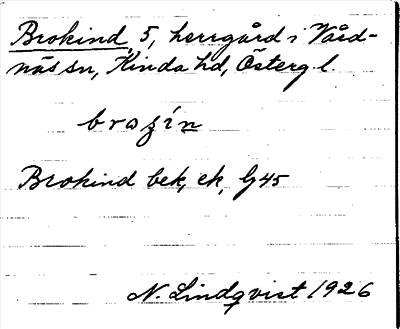 Brokind, 5, herrgård i Vård-
näs sn, Kinda hd, Östergl.
Brokind bek, ek, G45
N. Lindqvist 1926